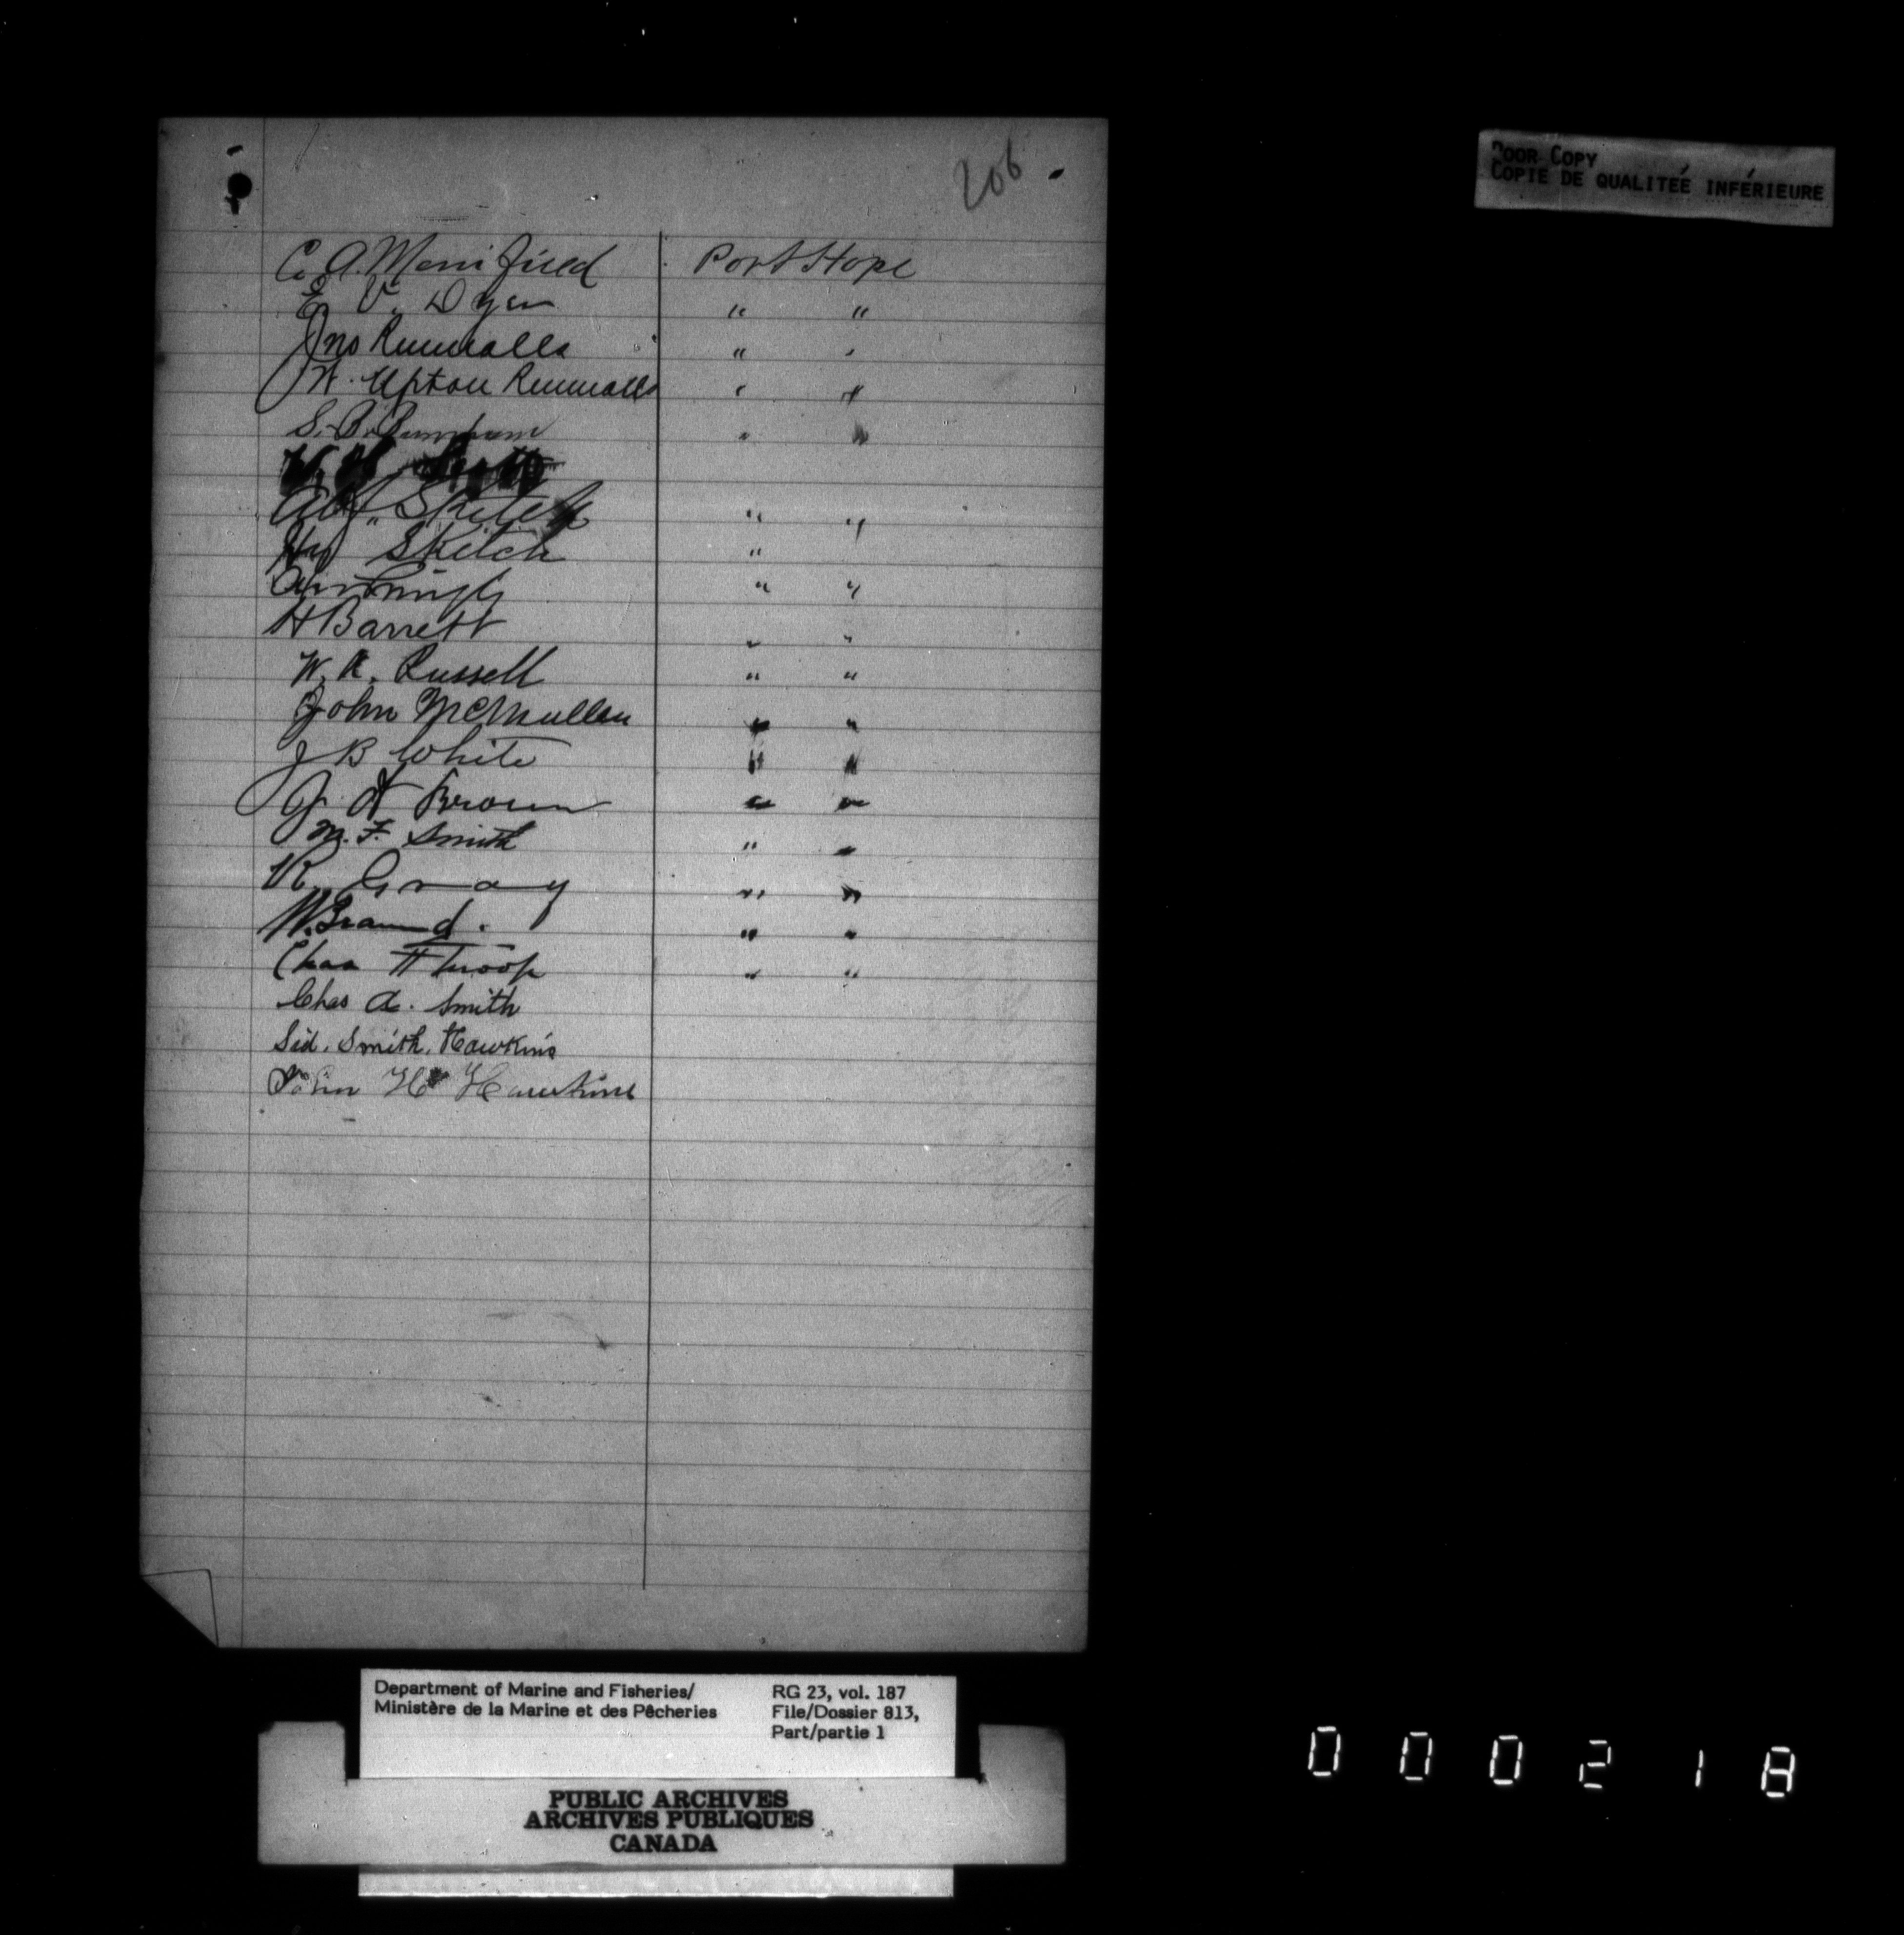 206
POOR COPY
COPIE DE QUALITEÉ INFÉRIEURE
C. A. Merrifield Port Hope
E V. Dyer " "
Jno Rummalls " "
W. Upton Rummalls " "
S. B. Burnham " "
Sketch " "
Hy Sketch "
" "
H Barrett " "
W. A. Russell " "
John McMullen " "
J B White " "
J. H Brown " "
M. F. Smith " "
R. Gray " "
W. Braund. " "
Chas Throop " "
Chas A. Smith
Sid. Smith. Hawkins
John H Hawkins
Department of Marine and Fisheries/
Ministère de la Marine et des Pêcheries
RG 23, vol. 187
File/Dossier 813,
Part/partie 1
PUBLIC ARCHIVES
ARCHIVES PUBLIQUES
CANADA
000218